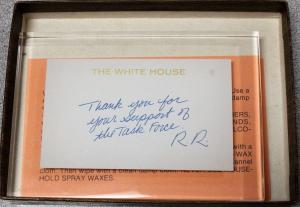 THE WHITE HOUSE
Use a
damp
Thank you for
your support of
the Task Force.
R.R.
ERS,
NDS,
LCO-
with a
-WAX
annel
cloth. Then wipe with a clean damp cloth.
HOUSE-
HOLD SPRAY WAXES.